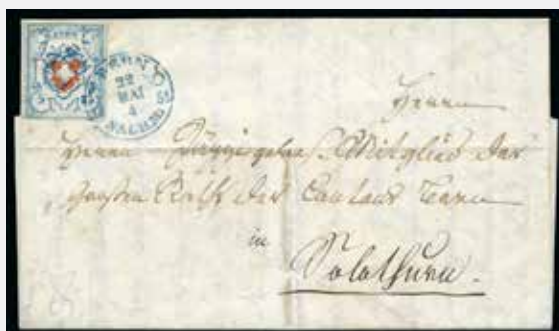 22
MAI
4
NACHM
Herrn
Herrn Mitglied des
großen Raths des Cantons Bern
in
Solothurn.